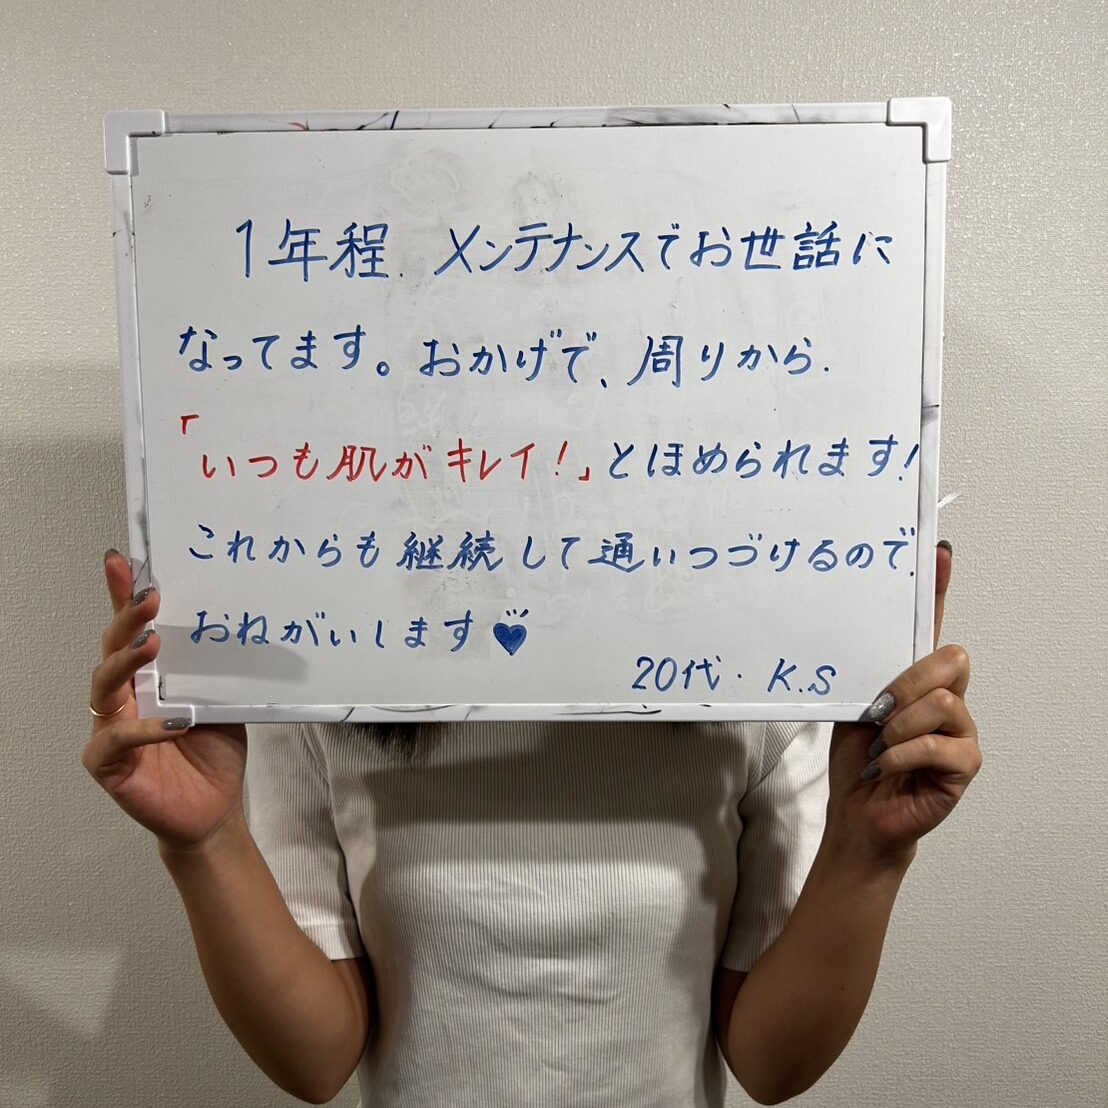 1年程、メンテナンスでお世話に
なってます。おかげで、周りから、
「いつも肌がキレイ!」とほめられます!
これからも継続して通いつづけるので、
おねがいします♥
20代. K.S